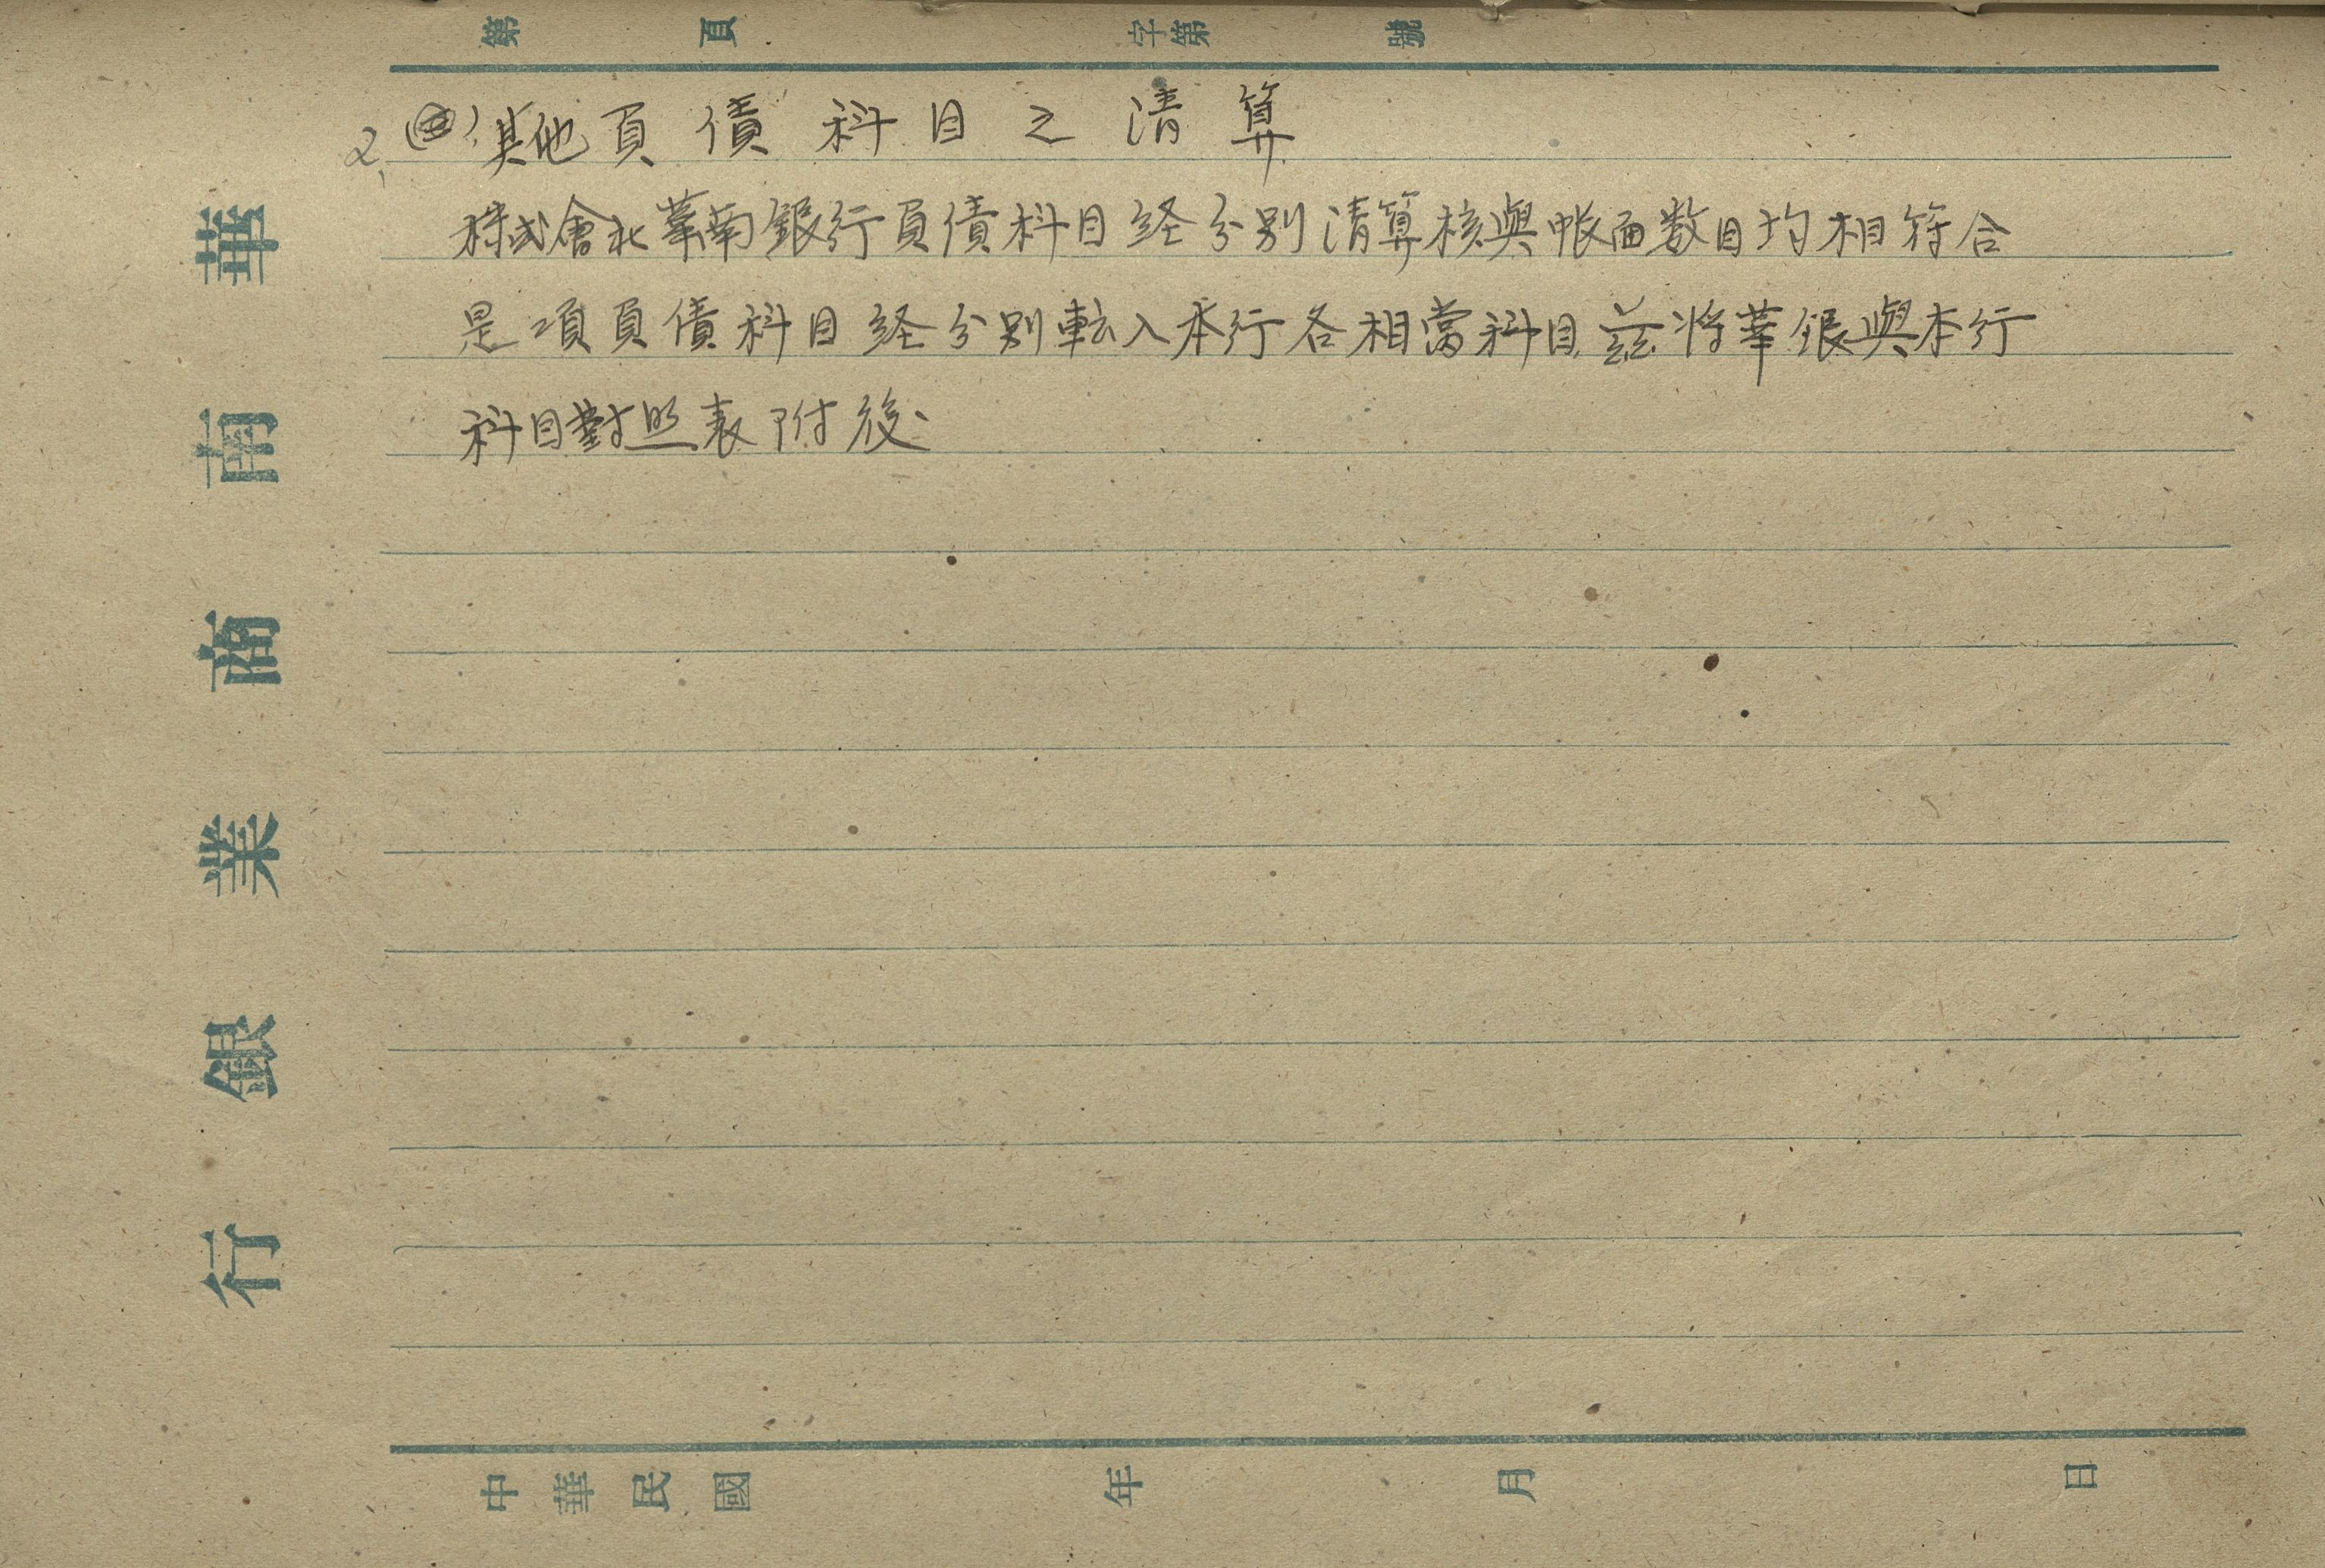 第 頁 字第 號
2、其他負債科目之清算
株式會社華南銀行負債科目経分別清算核與帐面数目均相符合
是項負債科目経分別転入本行各相當科目茲将華銀與本行
科目對照表附後
華南商業銀行
中華民國 年 月 日